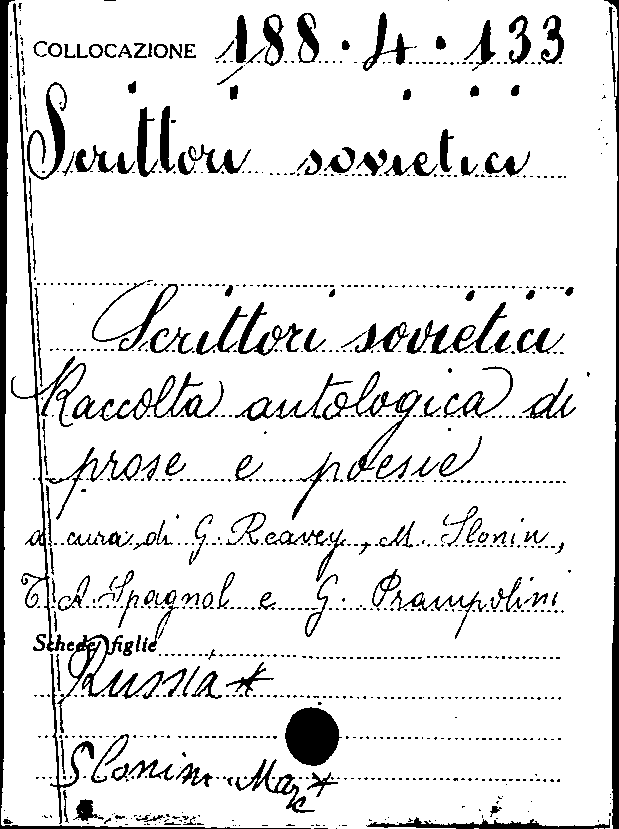 COLLOCAZIONE 188.4.133
Scrittori sovietici
Scrittori sovietici
Raccolta antologica di
prose e poesie
a cura di G. Reavey, M. Slonin,
T. A. Spagnol e G. Prampolini
Schede figlie
Russia *
Slonim Marc *